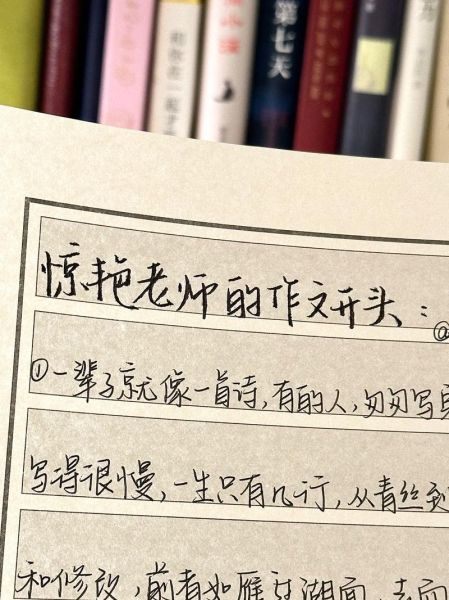 和你在一起才
第七天
惊艳老师的作文开头：
@
①一辈子就像一首诗,有的人,匆匆写
写得很慢,一生只有几行,从青丝到
和修改,前者如雁过湖面,去而